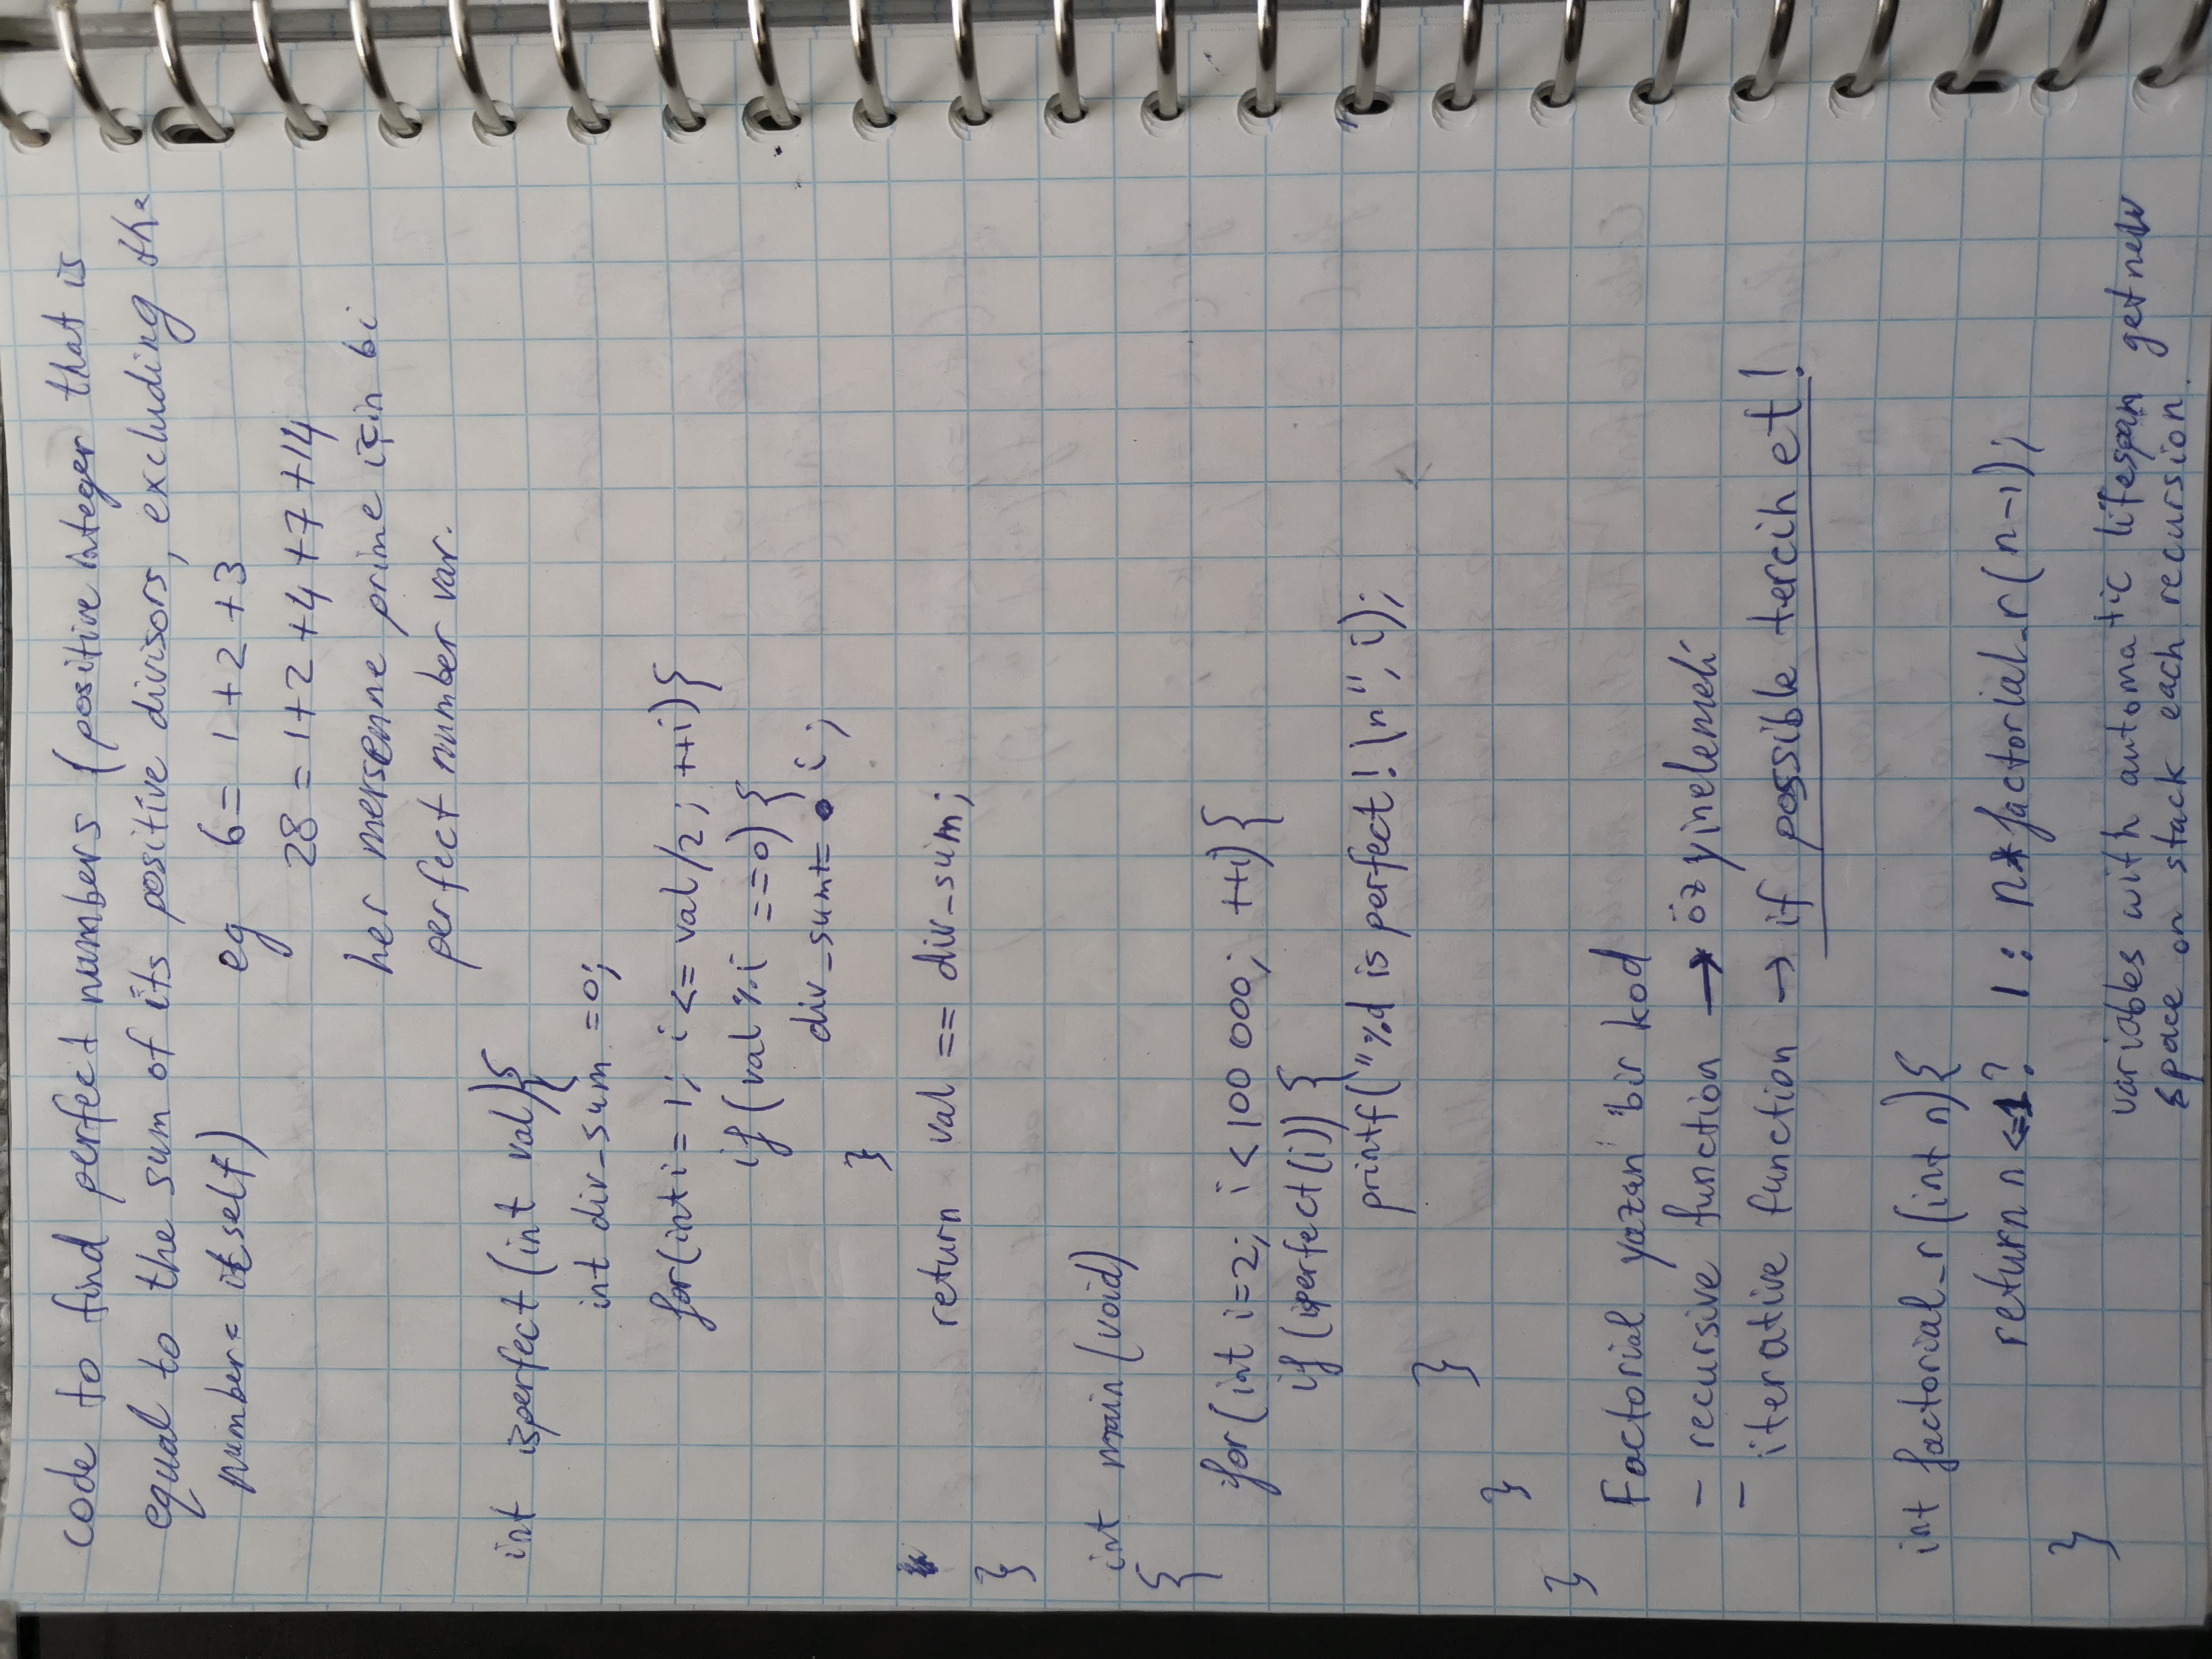 code to find perfect numbers (positive integer that is
equal to the sum of its positive divisors, excluding the
number itself) eg 6 = 1 + 2 + 3
28 = 1+2 +4 +7 +14
her mersenne prime için bi
perfect number var.
int isperfect (int val){
int div_sum =0;
for(int i = 1; i <= val/2; ++i){
if (val % i ==0) {
div_sum+= i;
}
return val == div_sum;
}
int main (void)
{
for (int i=2; i < 100 000; ++i){
if (isperfect(i)) {
printf("%d is perfect! \n", i);
}
}
}
Factorial yazan bir kod
- recursive function → özyinelemeli
- iterative function → if possible tercih et!
int factorial_r (int n){
return n <=1? 1 : n*factorial_r(n-1);
}
variables with automatic lifespan get new
space on stack each recursion.